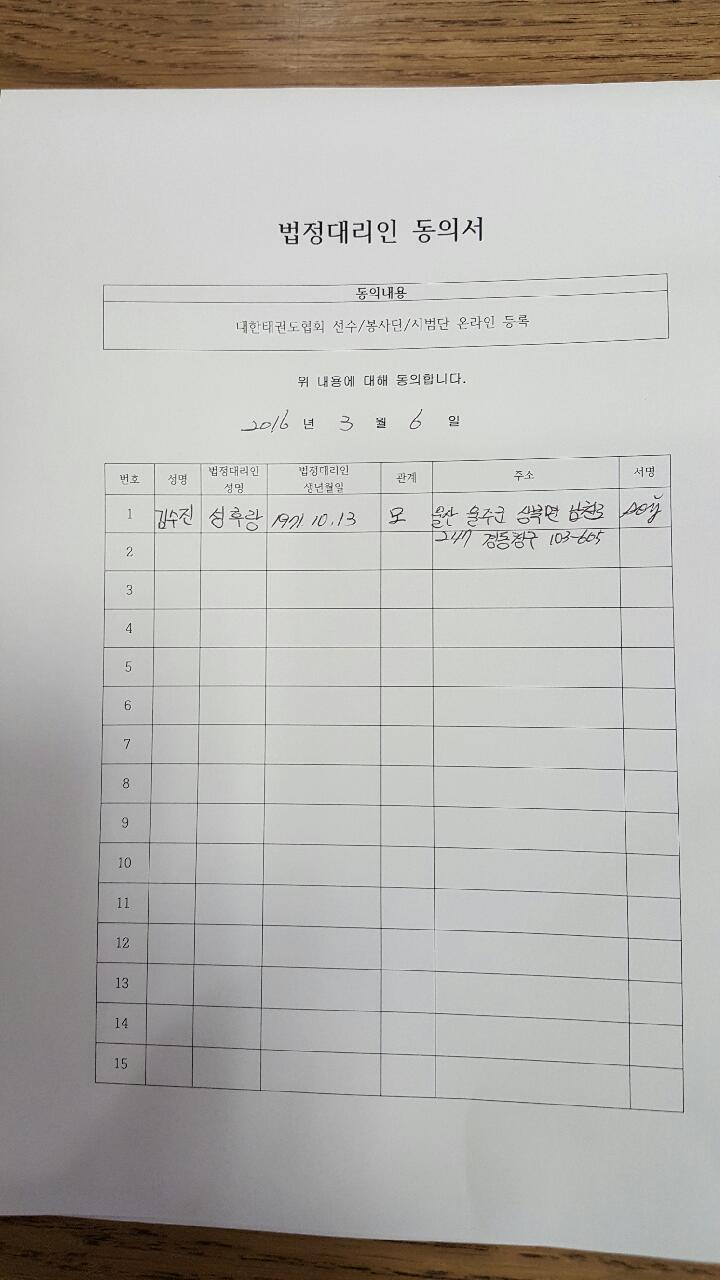 법정대리인 동의서
동의내용
대한태권도협회 선수/봉사단/시범단 온라인 등록
위 내용에 대해 동의합니다.
2016 년 3 월 6 일
번호 성명 법정대리인 성명 법정대리인 생년월일 관계 주소 서명
1 김수진 성후랑 1971.10.13 모 울산 울주군 상북면 남천로
2 247 경동청구 103-605
3
4
5
6
7
8
9
10
11
12
13
14
15